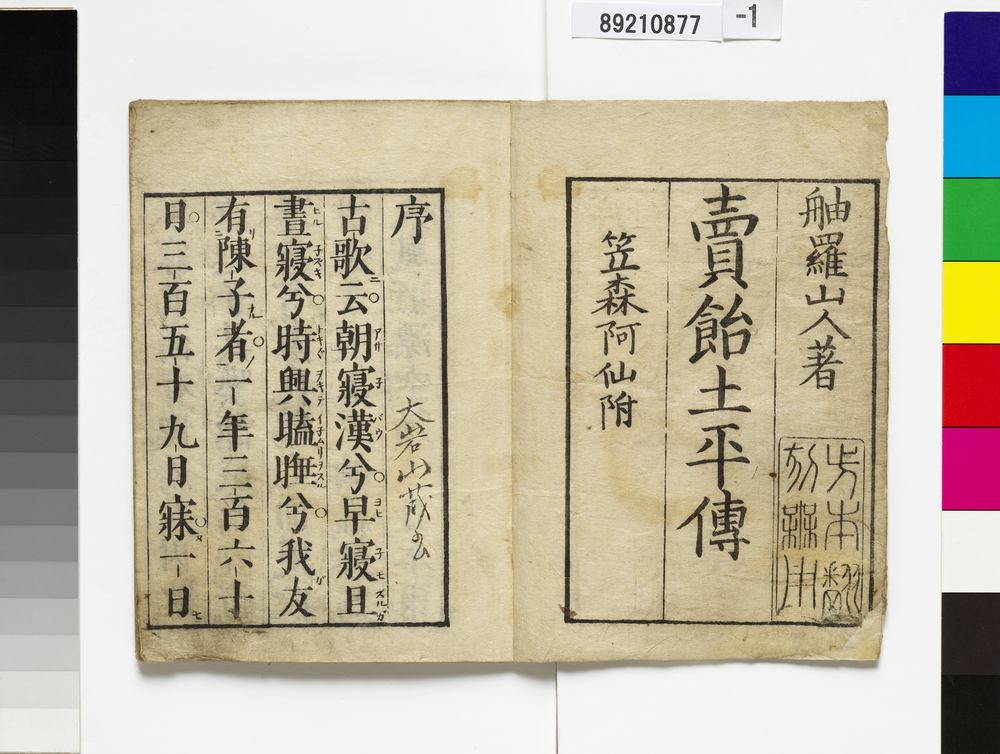 89210877
-1
舳羅山人著
賣飴土平傳
笠森阿仙附
序
古歌云朝寢漢兮早寢且
晝寢兮時興瞌聸兮我友
有陳子者一年三百六十
日三百五十九日寐一日